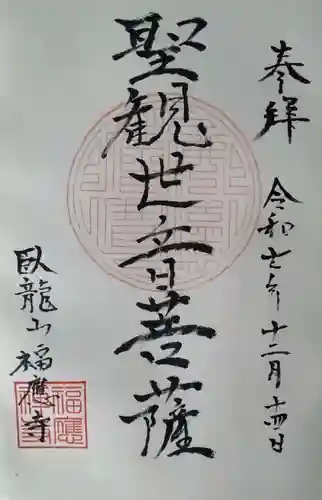 奉拝
令和七年十二月十四日
聖観世音菩薩
臥龍山福應寺
福應寺印